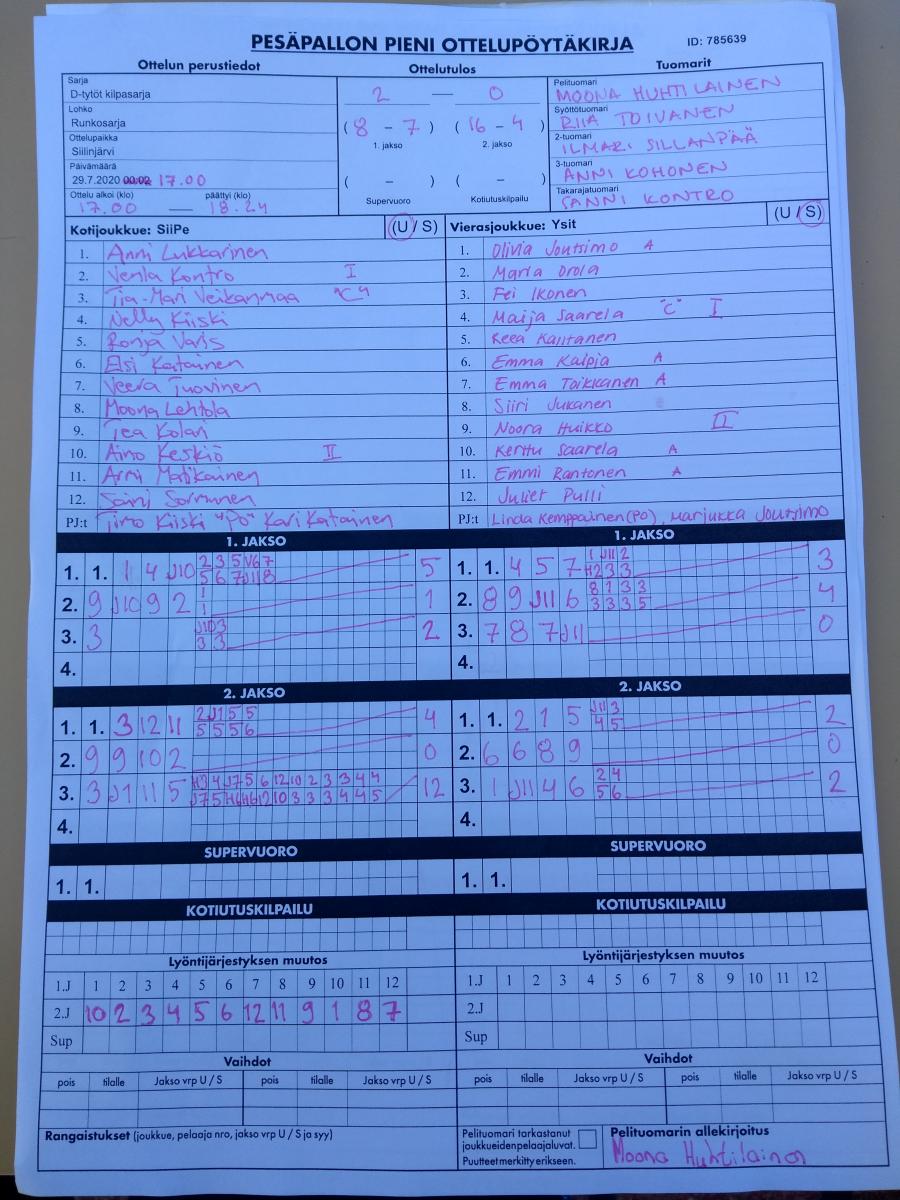 PESÄPALLON PIENI OTTELUPÖYTÄKIRJA ID: 785639
Ottelun perustiedot Ottelutulos Tuomarit
Sarja
D-tytöt kilpasarja
Lohko
Runkosarja
Ottelupaikka
Siilinjärvi
Päivämäärä
29.7.2020 00:02 17.00
Ottelu alkoi (klo) päättyi (klo)
17.00 — 18.24
2 — 0
(8 - 7) (16 - 4)
1. jakso 2. jakso
( - ) ( - )
Supervuoro Kotiutuskilpailu
Pelituomari
MOONA HUHTILAINEN
Syöttötuomari
RIIA TOIVANEN
2-tuomari
ILMARI SILLANPÄÄ
3-tuomari
ANNI KOHONEN
Takarajatuomari
SANNI KONTRO
Kotijoukkue: SiiPe (U / S)
1. Anni Lukkarinen
2. Venla Kontro I
3. Tia-Mari Veikanmaa "C"
4. Nelly Kiiski
5. Ronja Varis
6. Elsi Katainen
7. Veera Tuovinen
8. Moona Lehtola
9. Tea Kolari
10. Aino Keskiö II
11. Armi Matikainen
12. Saini Sormunen
PJ:t Timo Kiiski "PO" Kari Katainen
Vierasjoukkue: Ysit (U / S)
1. Olivia Joutsimo A
2. Maria Orola
3. Fei Ikonen
4. Maija Saarela "C" I
5. Keea Kaitanen
6. Emma Kalpia A
7. Emma Toikkanen A
8. Siiri Jukanen
9. Noora Huikko II
10. Kerttu Saarela A
11. Emmi Rantonen A
12. Juliet Pulli
PJ:t Linda Kemppainen (PO), Marjukka Joutsimo
1. JAKSO
1. 1. 1 4 J10 2 3 5 V6 7 5
5 6 7 J11 8
2. 9 J10 9 2 1 1
1
3. 3 J10 3 2
3 3
4.
1. JAKSO
1. 1. 4 5 7 1 J11 2 3
H2 3 3
2. 8 9 J11 6 8 1 3 3 4
3 3 3 5
3. 7 8 7 J11 0
4.
2. JAKSO
1. 1. 3 12 11 2 J1 5 5 4
5 5 5 6
2. 9 9 10 2 0
3. 3 J1 11 5 H3 4 J7 5 6 12 10 2 3 3 4 4 12
J7 5 H6 H6 12 10 3 3 3 4 4 5
4.
2. JAKSO
1. 1. 2 1 5 J11 3 2
4 5
2. 6 6 8 9 0
3. 1 J11 4 6 2 4 2
5 6
4.
SUPERVUORO
1. 1.
SUPERVUORO
1. 1.
KOTIUTUSKILPAILU
KOTIUTUSKILPAILU
Lyöntijärjestyksen muutos
1.J 1 2 3 4 5 6 7 8 9 10 11 12
2.J 10 2 3 4 5 6 12 11 9 1 8 7
Sup
Lyöntijärjestyksen muutos
1.J 1 2 3 4 5 6 7 8 9 10 11 12
2.J
Sup
Vaihdot
pois tilalle Jakso vrp U / S pois tilalle Jakso vrp U / S
Vaihdot
pois tilalle Jakso vrp U / S pois tilalle Jakso vrp U / S
Rangaistukset (joukkue, pelaaja nro, jakso vrp U / S ja syy)
Pelituomari tarkastanut
joukkueidenpelaajaluvat.
Puutteet merkitty erikseen.
Pelituomarin allekirjoitus
Moona Huhtilainen